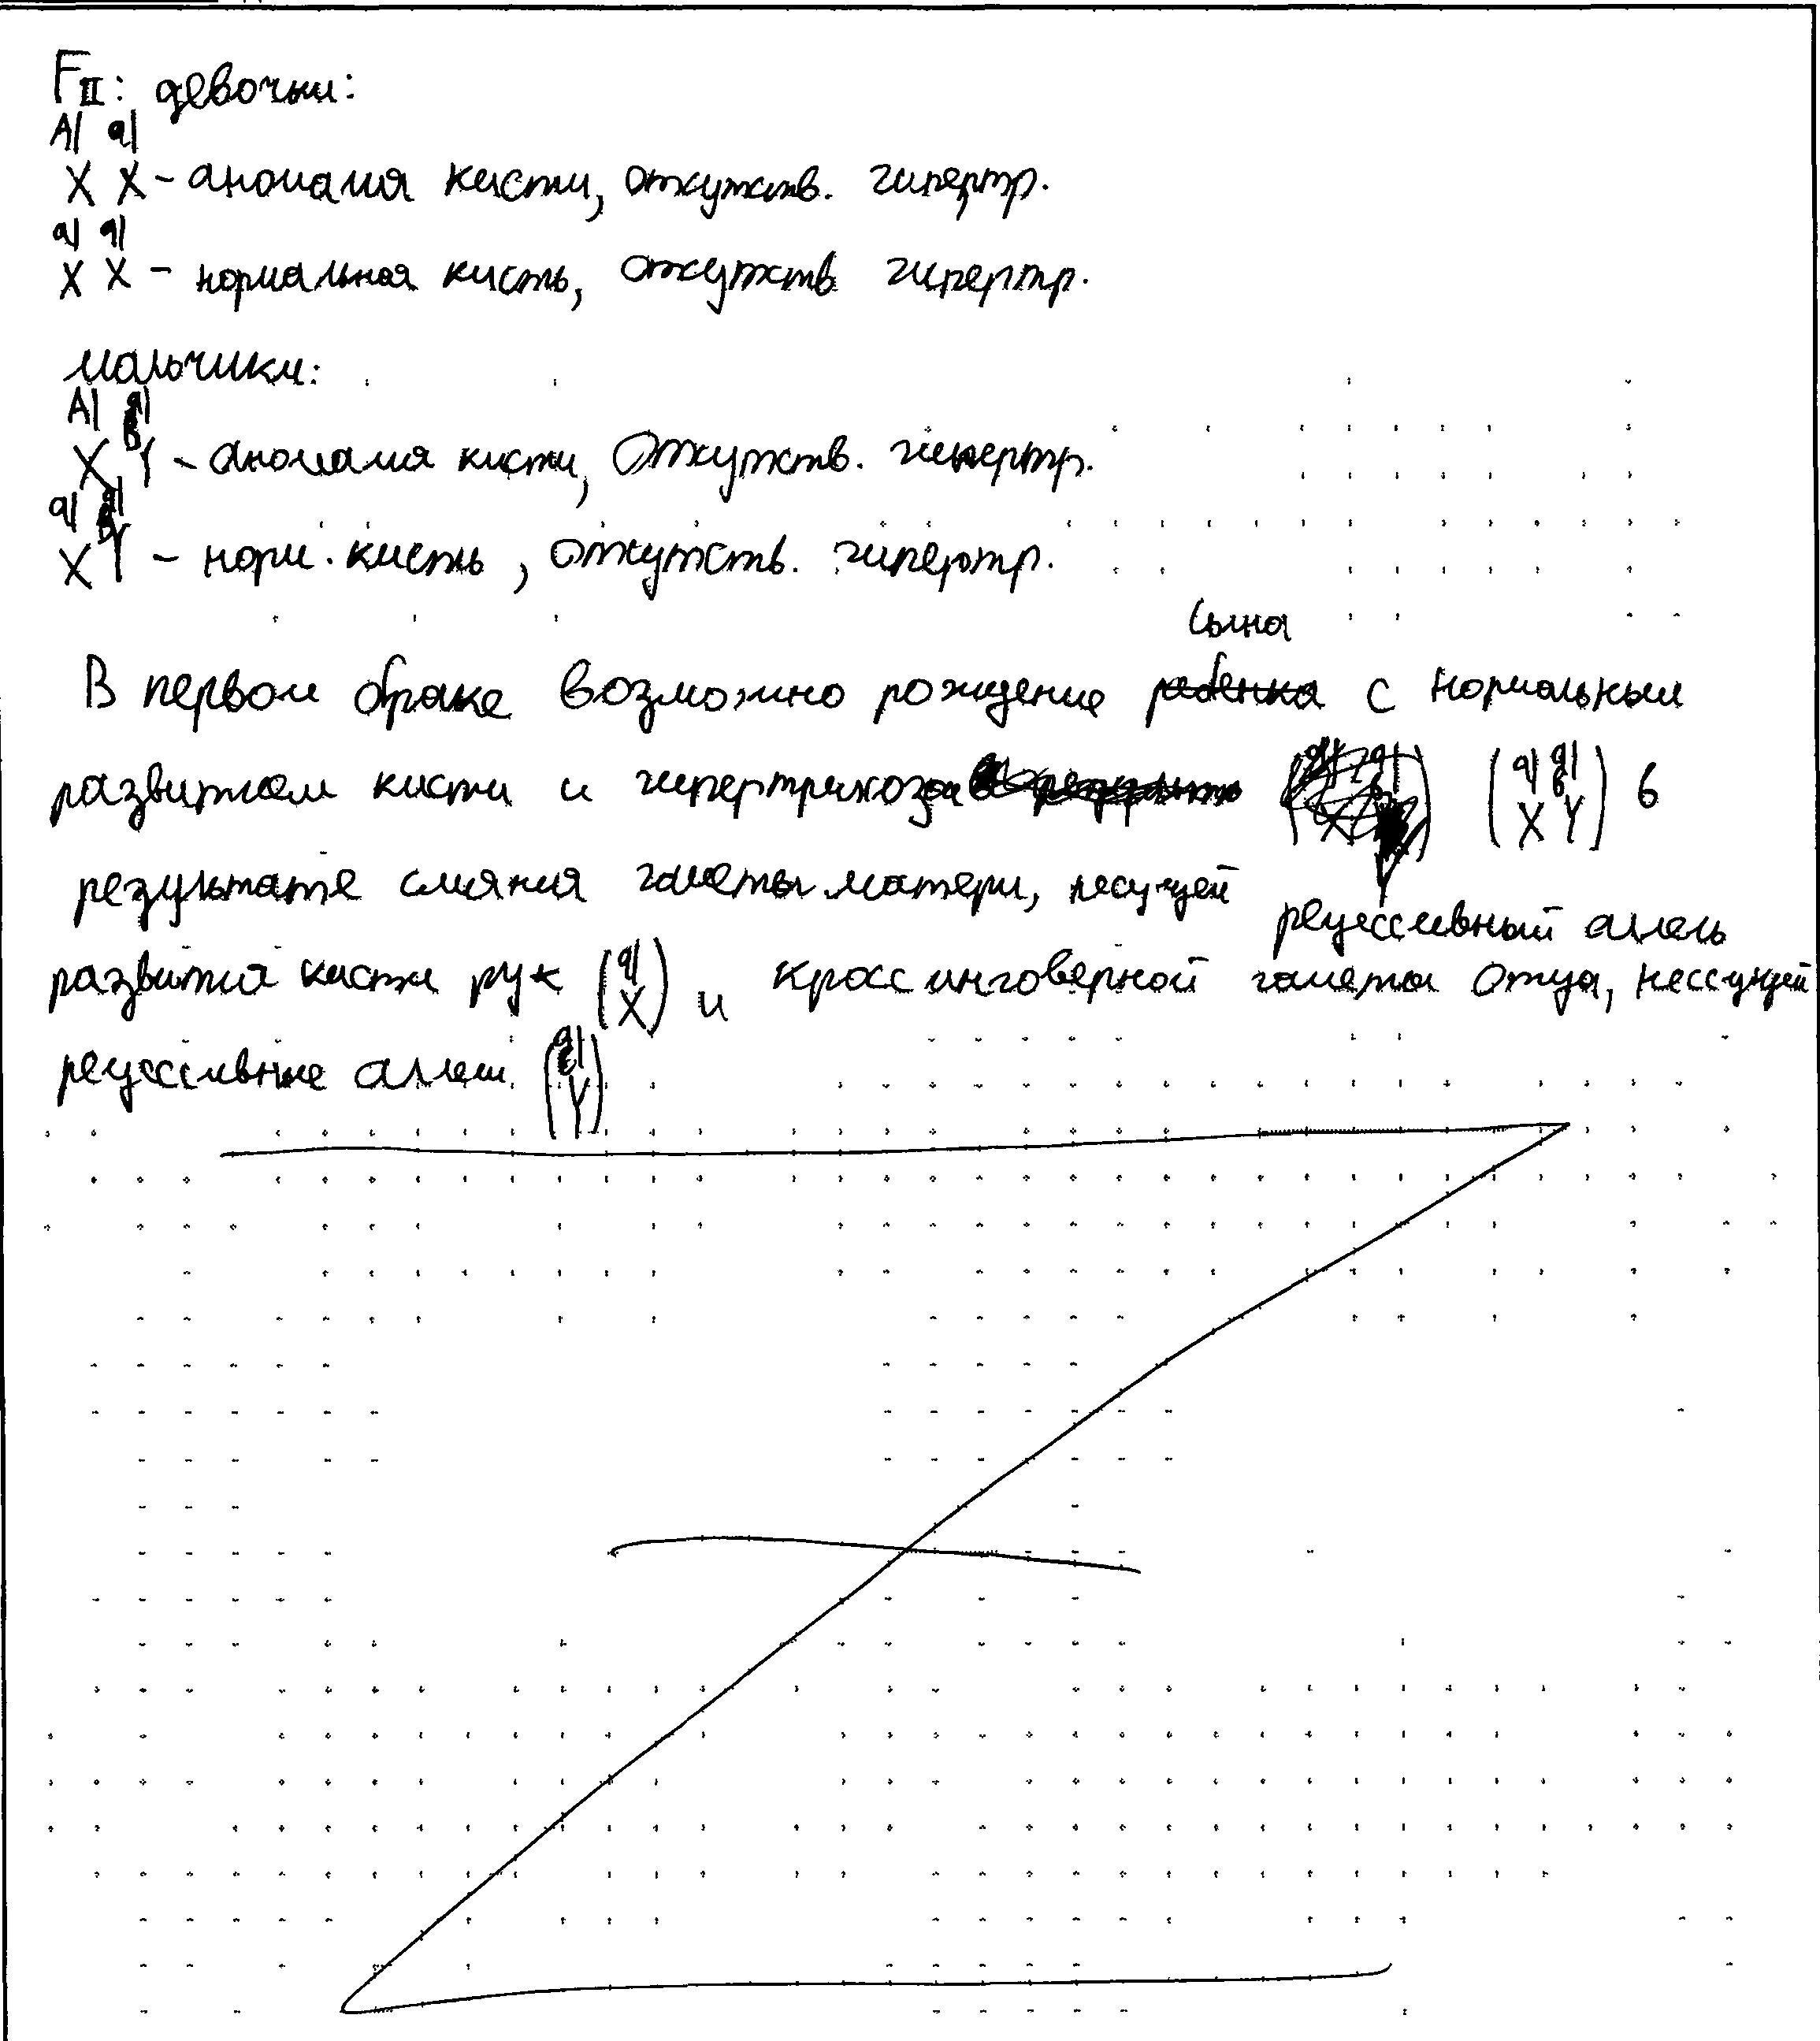 F II: девочки:
A| a|
X X - аномалия кисти, отсутств. гипертр.
a| a|
X X - нормальная кисть, отсутств гипертр.
мальчики:
A| a|
X Y - аномалия кисти, отсутств. гипертр.
a| a|
X Y - норм. кисть, отсутств. гипертр.
сына
В первом браке возможно рождение ребенка с нормальным
развитием кисти и гипертрихоза (a| a|b X Y) в
результате слияния гаметы матери, несущей рецессивный аллель
развития кисти рук (a| X) и кроссинговерной гаметы отца, нессущей
рецессивные аллели. (a| Y)